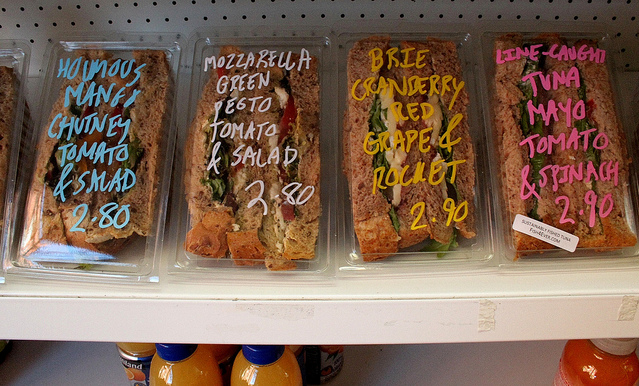 HOUMOUS
MANGY
CHUTNEY
TOMATO
& SALAD
2.80
MOZZARELLA
GREEN
PESTO
TOMATO
& SALAD
2.80
BRIE
CRANBERRY
RED
GRAPE &
ROCKET
2.90
LINE-CAUGHT
TUNA
MAYO
TOMATO
& SPINACH
2.90
SUSTAINABLY FISHED TUNA
FISH4EVER.COM